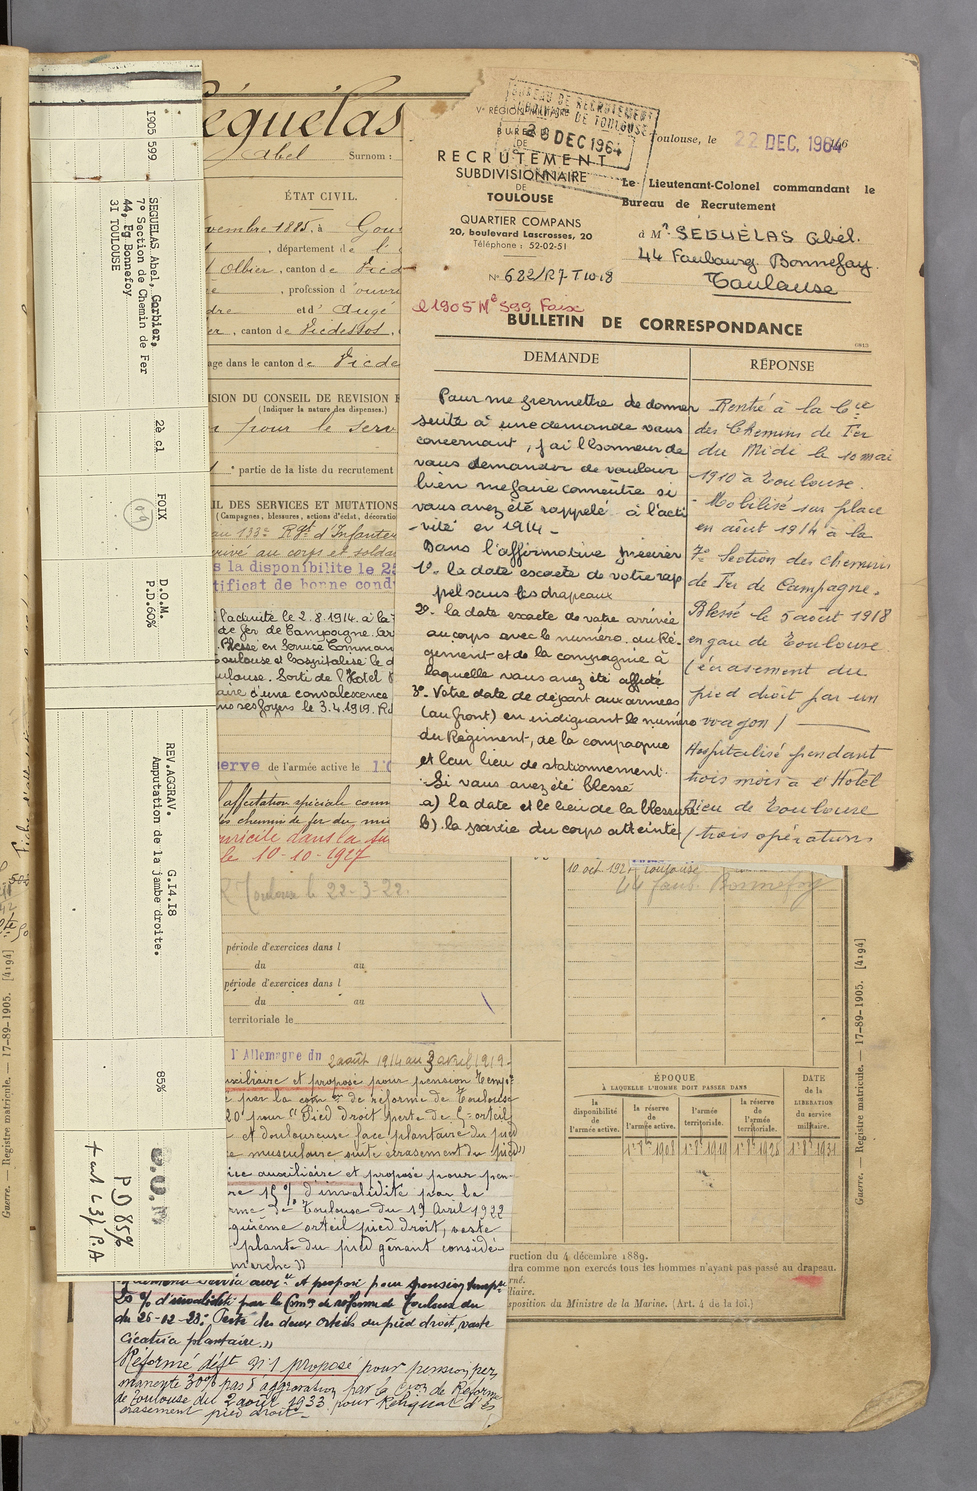 Séguélas
Abel Surnom :
ÉTAT CIVIL.
vembre 1885, à Gou
, département de l'
Ollier, canton de Vicd
, profession d'ouvri
et d' Augé
, canton de Vicdessos,
age dans le canton de Vicde
SION DU CONSEIL DE REVISION E
(Indiquer la nature des dispenses.)
pour le serv
partie de la liste du recrutement
IL DES SERVICES ET MUTATIONS
(Campagnes, blessures, actions d'éclat, décoratio
au 133e Rgt d'Infanter
rrivé au corps et soldat
s la disponibilité le 25
tificat de bonne cond
l'activité le 2.8.1914. à la 7
de fer de Campagne.
Blessé en Service Comman
Toulouse et hospitalisé le d
ulouse. Sorti de l'Hotel
aire d'une convalescence
ns ses foyers le 3.4.1919.
serve de l'armée active le 1 O
l'affectation spéciale comm
es chemins de fer du mi
omicile dans la su
le 10-10-1927
R Toulouse le 22-3-22.
période d'exercices dans l
du au
période d'exercices dans l
du au
territoriale le
l'Allemagne du 2 août 1914 au 3 avril 1919.
uxiliaire et proposé pour pension temp
par la com on de réforme de Toulouse
20 pour "Pied droit perte de 5e orteil
et douloureuse face plantaire du pied
e musculaire suite écrasement du pied"
ice auxiliaire et proposé pour pen-
re 15% d'invalidité par la
rme de Toulouse du 19 Avril 1922
quième orteil pied droit, vaste
plante du pied gênant considé-
marche"
Service aux re et proposé pour pension tempre
20 % d'invalidité par la Comon de réforme de Toulouse du
du 26-02-23: Perte des deux orteils du pied droit, vaste
cicatrice plantaire."
Réformé déft N°1 proposé pour pension per
manente 30% pas d'aggravation par la Con de Réforme
de Toulouse du 2 août 1933 pour Reliquat d'é
crasement pied droit
1905 599
SEGUELAS Abel, Gerbier,
7° Section de Chemin de Fer
44, Fg Bonnefoy
31 TOULOUSE
2è cl
FOIX
(09)
D.O.M.
P.D.60%
REV.AGGRAV. G.14.18
Amputation de la jambe droite.
85%
D.O.M.
P D 85%
+ art L 37 P.A
Ve RÉGION MILITAIRE
BUREAU
DE
RECRUTEMENT
SUBDIVISIONNAIRE
DE
TOULOUSE
QUARTIER COMPANS
20, boulevard Lascrosses, 20
Téléphone : 52-02-51
N° 622/R7 T10 18
BUREAU DE RECRUTEMENT
DE TOULOUSE
28 DEC 1964
Toulouse, le 22 DEC. 1964
Le Lieutenant-Colonel commandant le
Bureau de Recrutement
à Mr SEGUÉLAS Abél.
44 Faubourg Bonnefoy.
Toulouse
cl 1905 Mle 599 Foix
BULLETIN DE CORRESPONDANCE
DEMANDE
Pour me permettre de donner
suite à une demande vous
concernant, j'ai l'honneur de
vous demander de vouloir
bien me faire connaître si
vous avez été rappelé à l'acti
-vité en 1914-
Dans l'affirmative préciser
1°- la date exacte de votre rap
pel sous les drapeaux
2°- la date exacte de votre arrivée
au corps avec le numéro du Ré-
giment et de la compagnie à
laquelle vous avez été affecté
3°- Votre date de départ aux armées
(au front) en indiquant le numéro
du Régiment, de la compagnie
et leur lieu de stationnement.
Si vous avez été blessé
a) la date et le lieu de la blessure
b) la partie du corps atteinte
RÉPONSE
Rentré à la Cie
des Chemins de Fer
du Midi le 10 mai
1910 à Toulouse.
- Mobilisé sur place
en août 1914 à la
7e Section des chemins
de Fer de Campagne.
Blessé le 5 août 1918
en gare de Toulouse
(écrasement du
pied droit par un
wagon)
Hospitalisé pendant
trois mois à l'Hôtel
Dieu de Toulouse
(trois opérations
10 oct. 1927 Toulouse
44 faub. Bonnefoy
ÉPOQUE
À LAQUELLE L'HOMME DOIT PASSER DANS
la disponibilité de l'armée active.
la réserve de l'armée active.
l'armée territoriale.
la réserve de l'armée territoriale.
DATE de la LIBÉRATION du service militaire.
1er 8bre 1908 1er 8bre 1919 1er 8bre 1925 1er 8bre 1931
ruction du 4 décembre 1889.
dra comme non exercés tous les hommes n'ayant pas passé au drapeau.
rné.
iliaire.
sposition du Ministre de la Marine. (Art. 4 de la loi.)
Guerre. — Registre matricule. — 17-89-1905. [4194]
Guerre. — Registre matricule. — 17-89-1905. [4194]